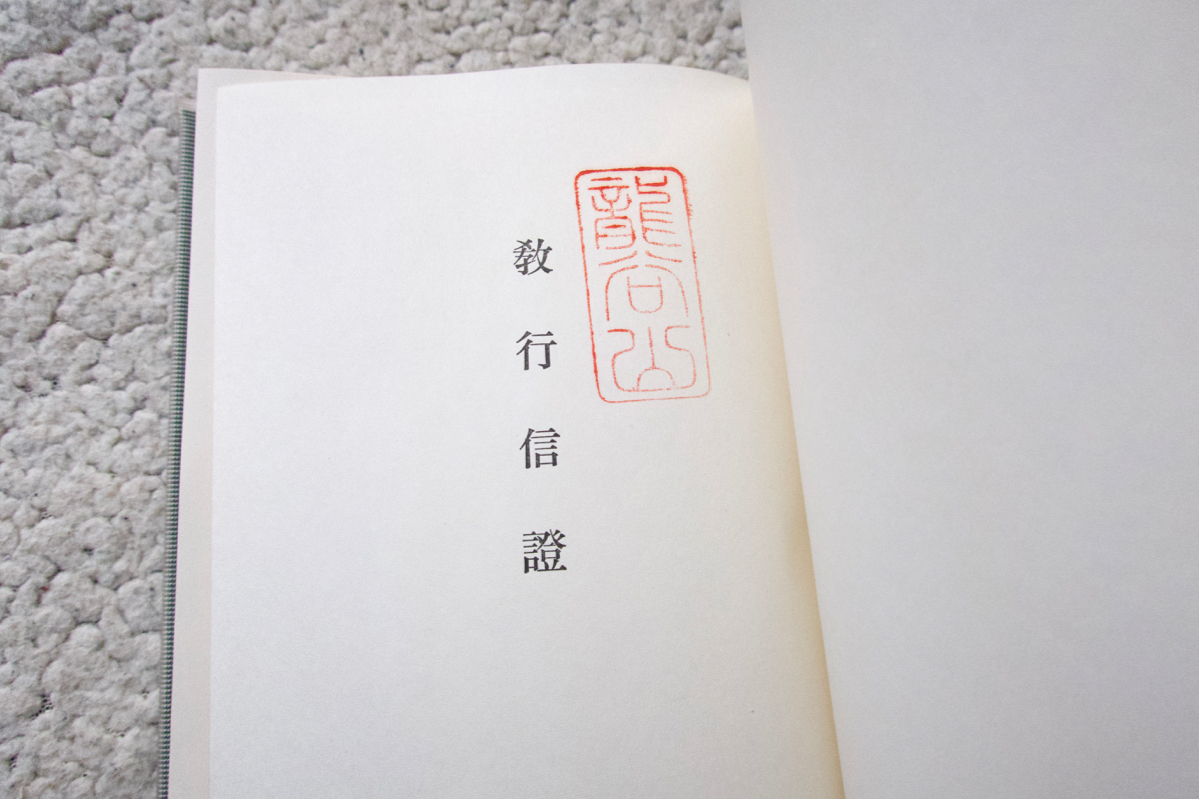 龍谷山
教行信證